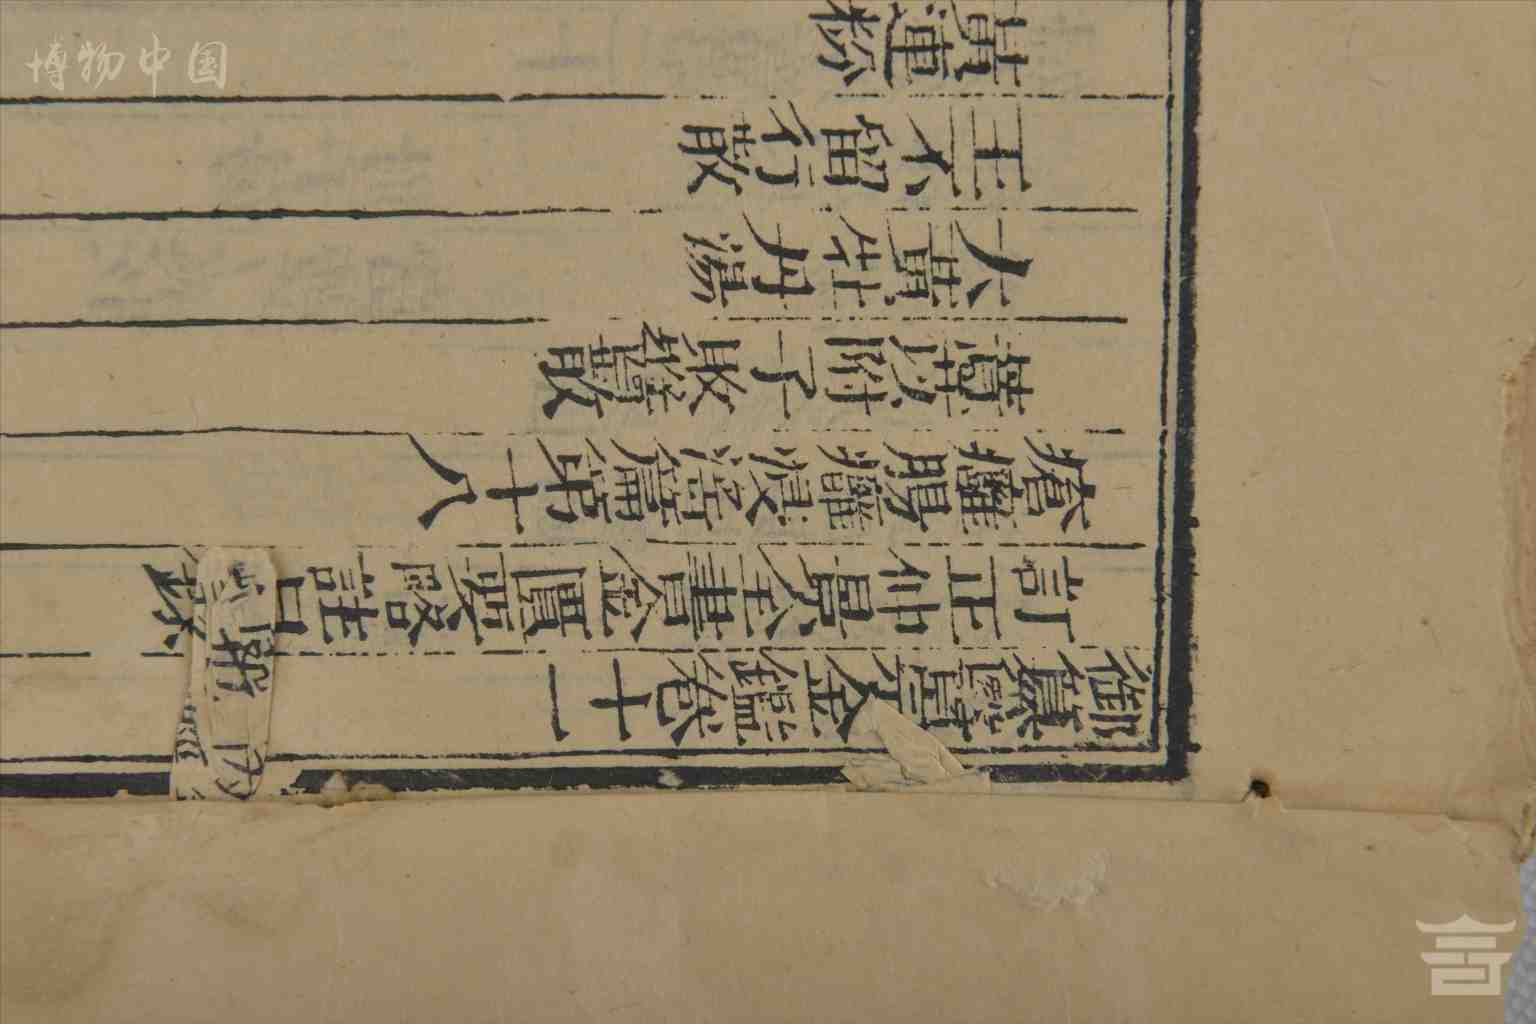 御纂醫宗金鑑卷十一
訂正仲景全書金匱要略註目錄
瘡癰腸癰浸淫篇第十八
薏苡附子敗醬散
大黃牡丹湯
王不留行散
黃連粉
博物中国